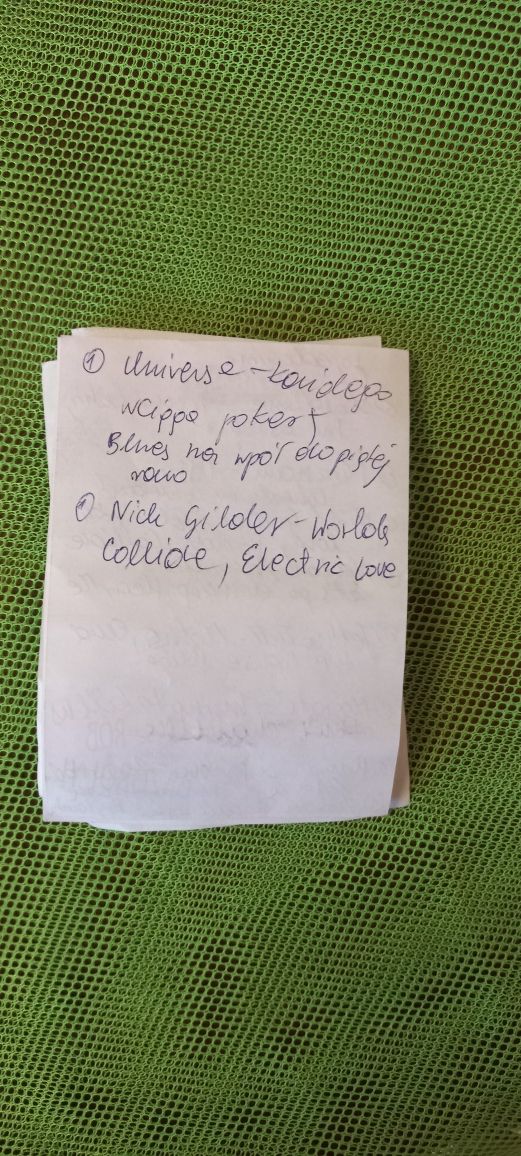 ① Universe - Każdego
wciąga pokera
Blues na wpół do piątej
rano
① Nick Gilder - Worlds
Collide, Electric Love